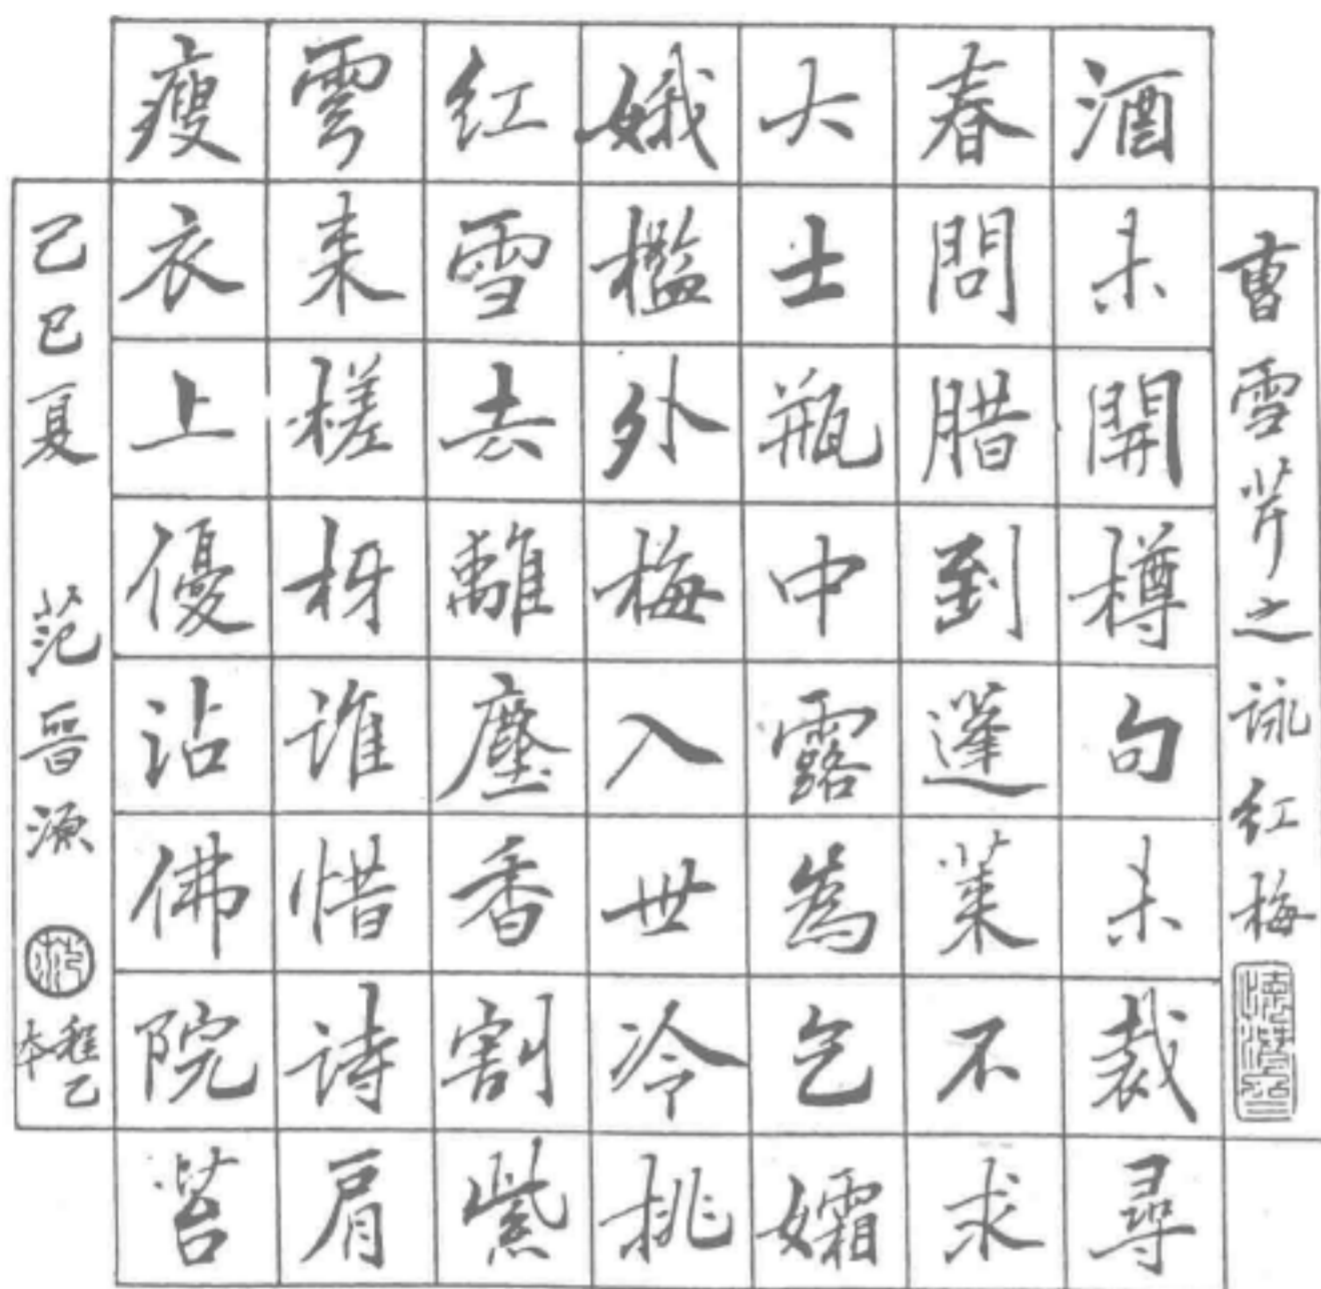 曹雪芹之詠紅梅
酒未開樽句未裁尋
春問腊到蓬萊不求
大士瓶中露為乞孀
娥檻外梅入世冷挑
红雪去離塵香割紫
雲来槎枒谁惜诗肩
瘦衣上優沾佛院苔
己巳夏 范晋源
程乙本